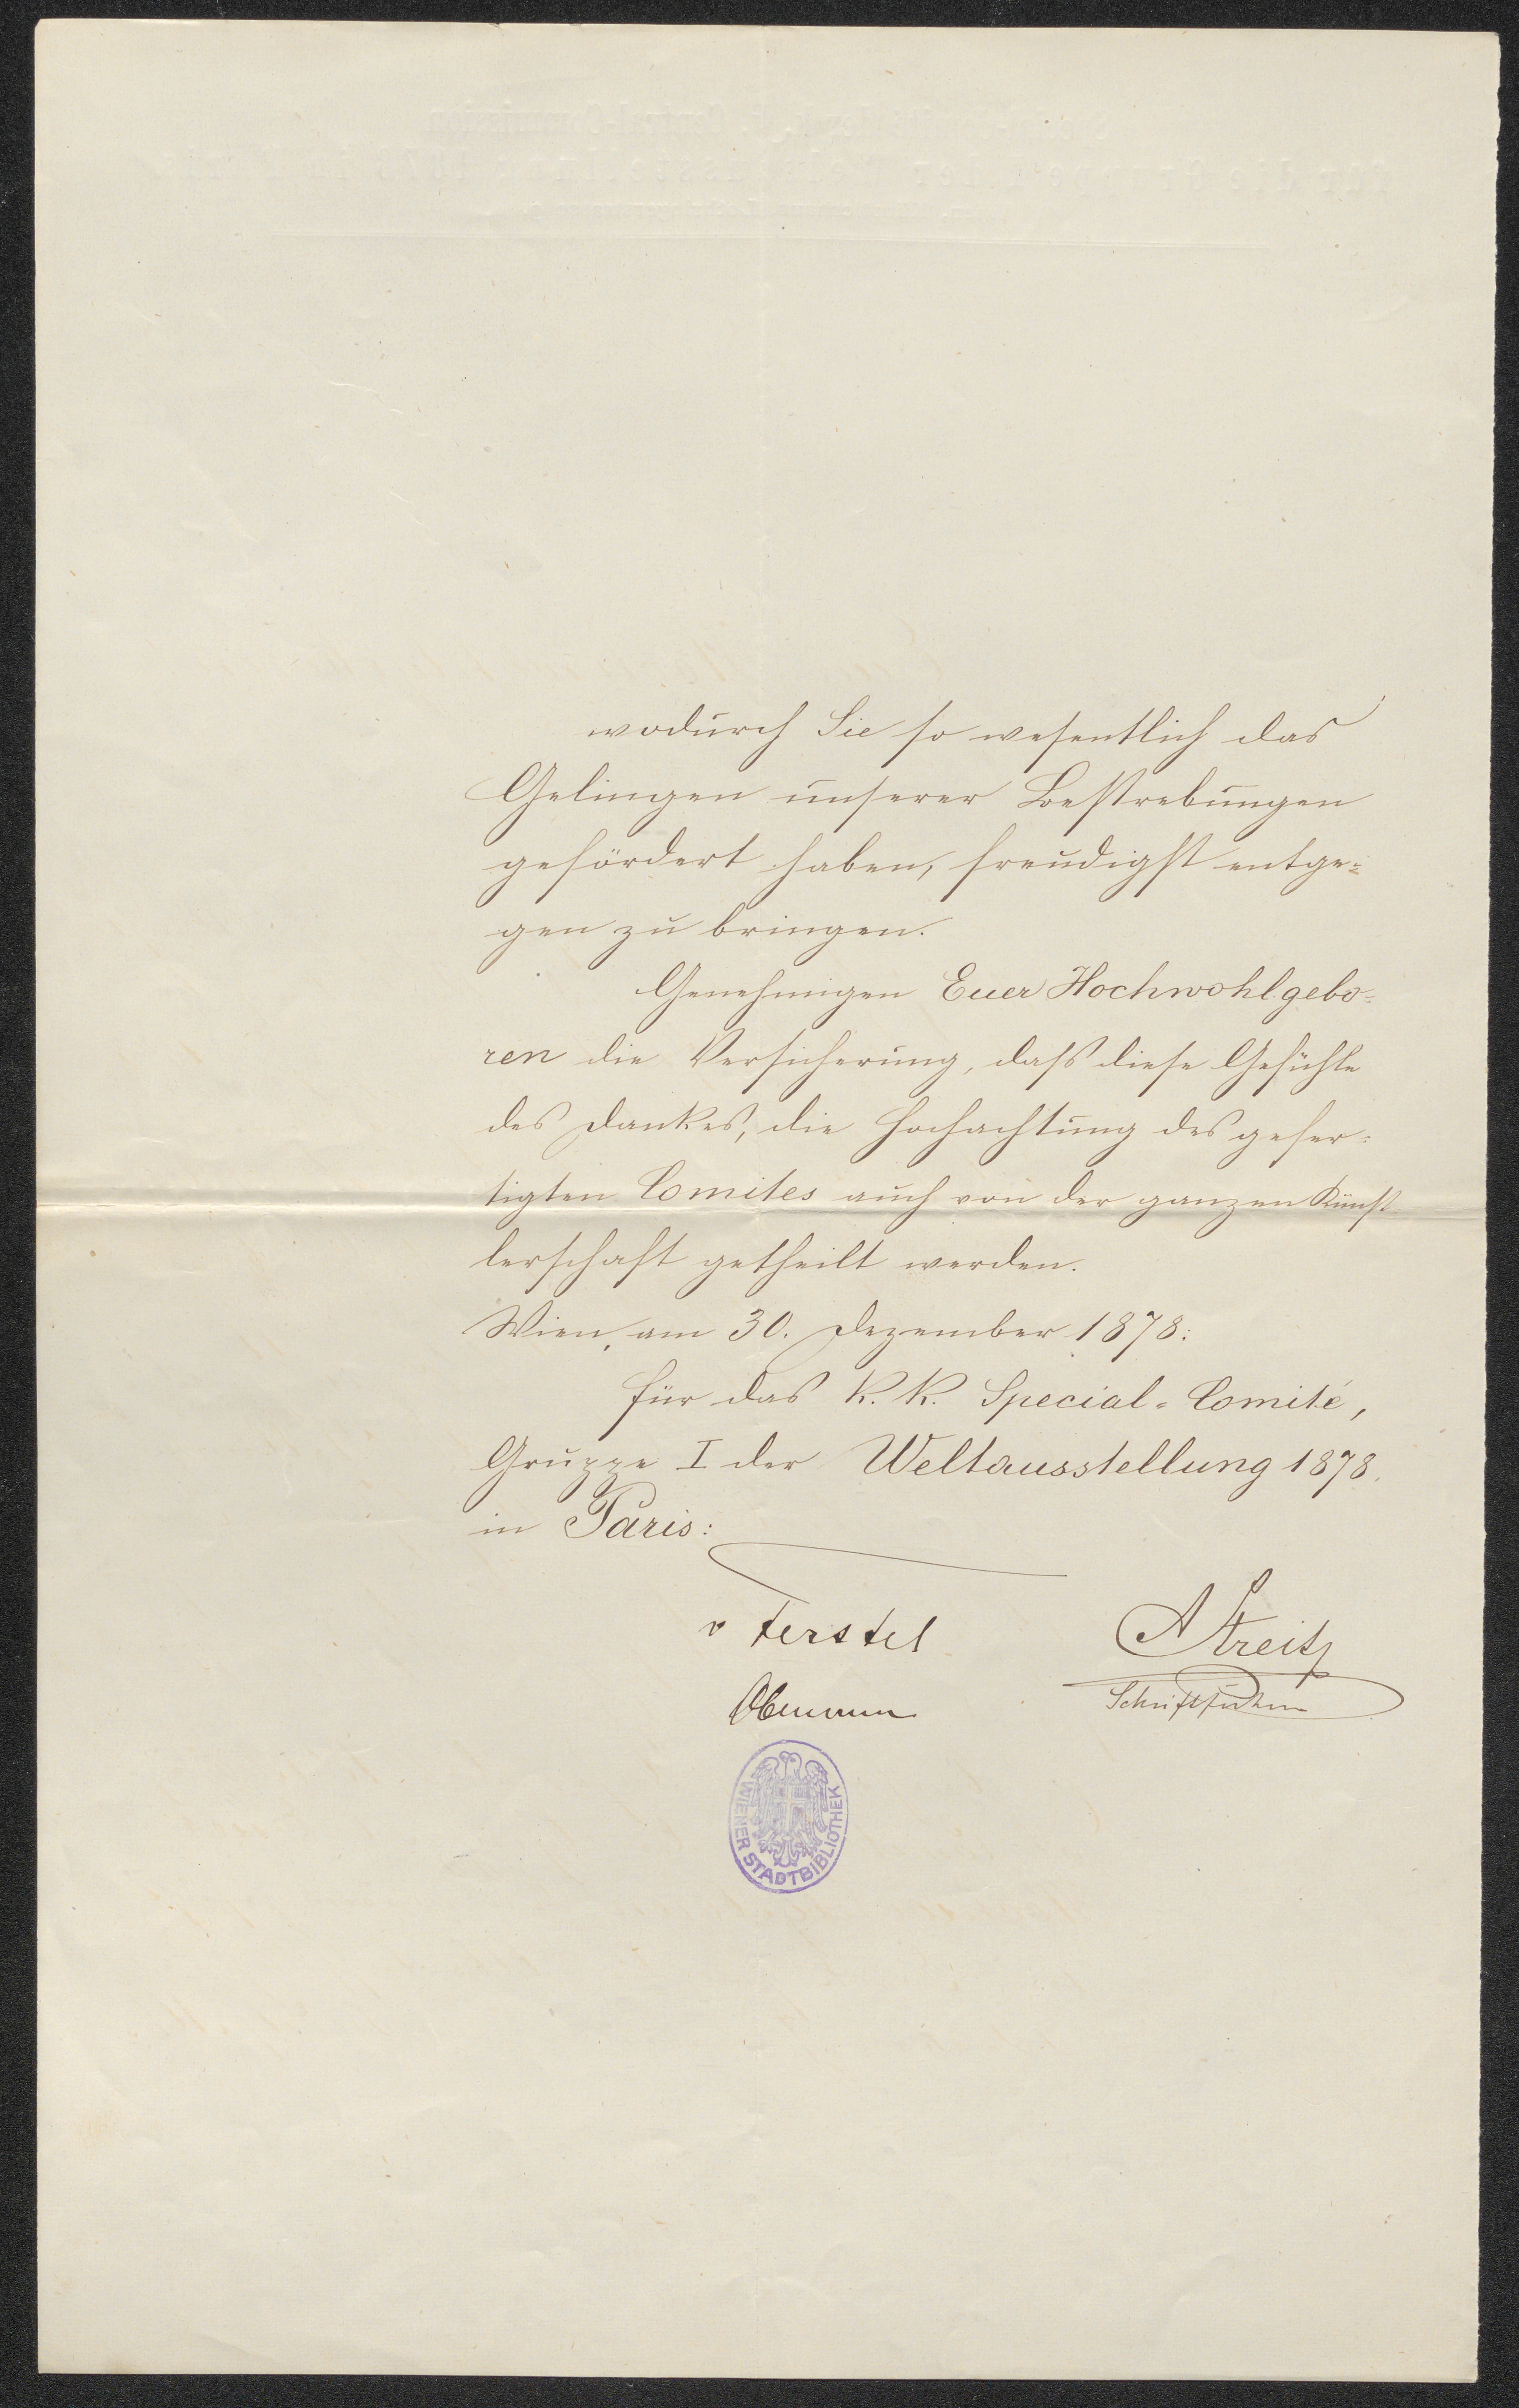 wodurch Sie so wesentlich das
Gelingen unserer Bestrebungen
gefördert haben, freudigst entge=
gen zu bringen.
Genehmigen Euer Hochwohlgebo=
ren die Versicherung, daß diese Gefühle
des Dankes, die Hochachtung des gefer=
tigten Comites auch von der ganzen Künst
lerschaft getheilt werden.
Wien, am 30. Dezember 1878:
Für das K. K. Special=Comité,
Gruppe I der Weltausstellung 1878.
in Paris:
v Ferstel
A Streit
Obmann
Schriftführer
WIENER STADTBIBLIOTHEK